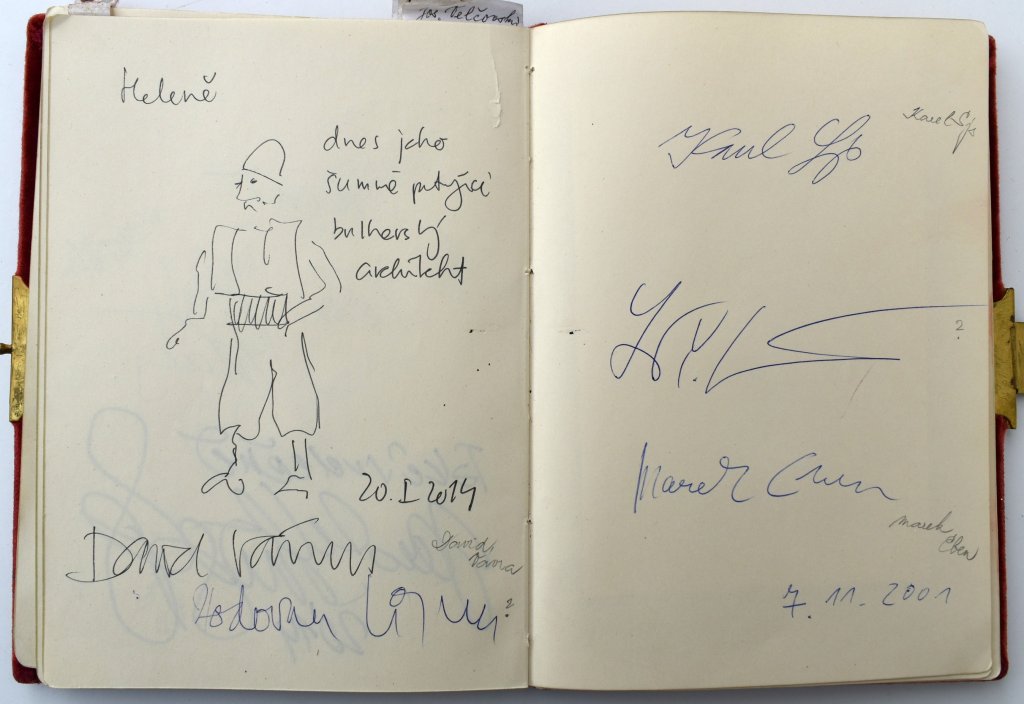 Jos. Velčovský
Heleně
dnes jeho
šumně putyjící
bulharský
architekt
20.I 2014
David Vávra
David
Vávra
?
Karel Sýs
Karel Sýs
?
Marek Eben
Marek
Eben
7. 11. 2001